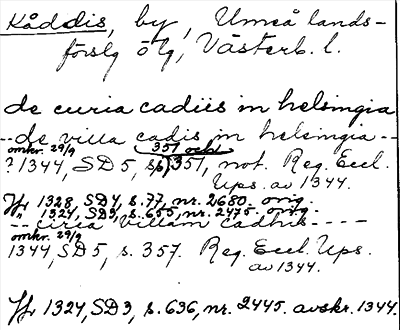 Kåddis, by, Umeå lands-
förslg ölg, Västerb. l.
de curia cadiis in helsingia
--de villa cadis in helsingia--
omkr. 29/9 351 och
? 1344, SD5, s. 351, not. Reg. Eccl.
Ups. av 1344.
Jfr 1328, SD4, s. 77, nr. 2680 orig.
" 1324, SD3, s. 655, nr. 2475. orig.
-- circa villam cadhis ----
omkr. 29/9
1344, SD5, s. 357. Reg. Eccl. Ups.
av 1344.
Jfr 1324, SD3, s. 636, nr. 2445. avskr. 1344.